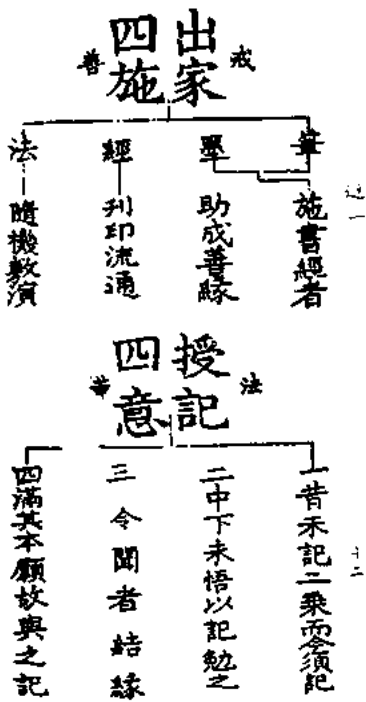 出家四施
戒
善
筆
墨
經
法
施書經者
助成善緣
刊印流通
隨機敷演
授記四意
法
華
一昔未記二乘而今須記
二中下未悟以記勉之
三令聞者結緣
四滿其本願故與之記
十二